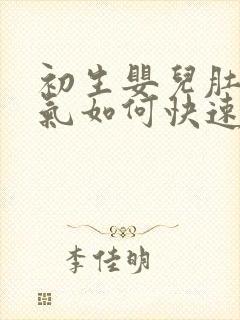 初生嬰兒肚
氣如何快速
李佳明